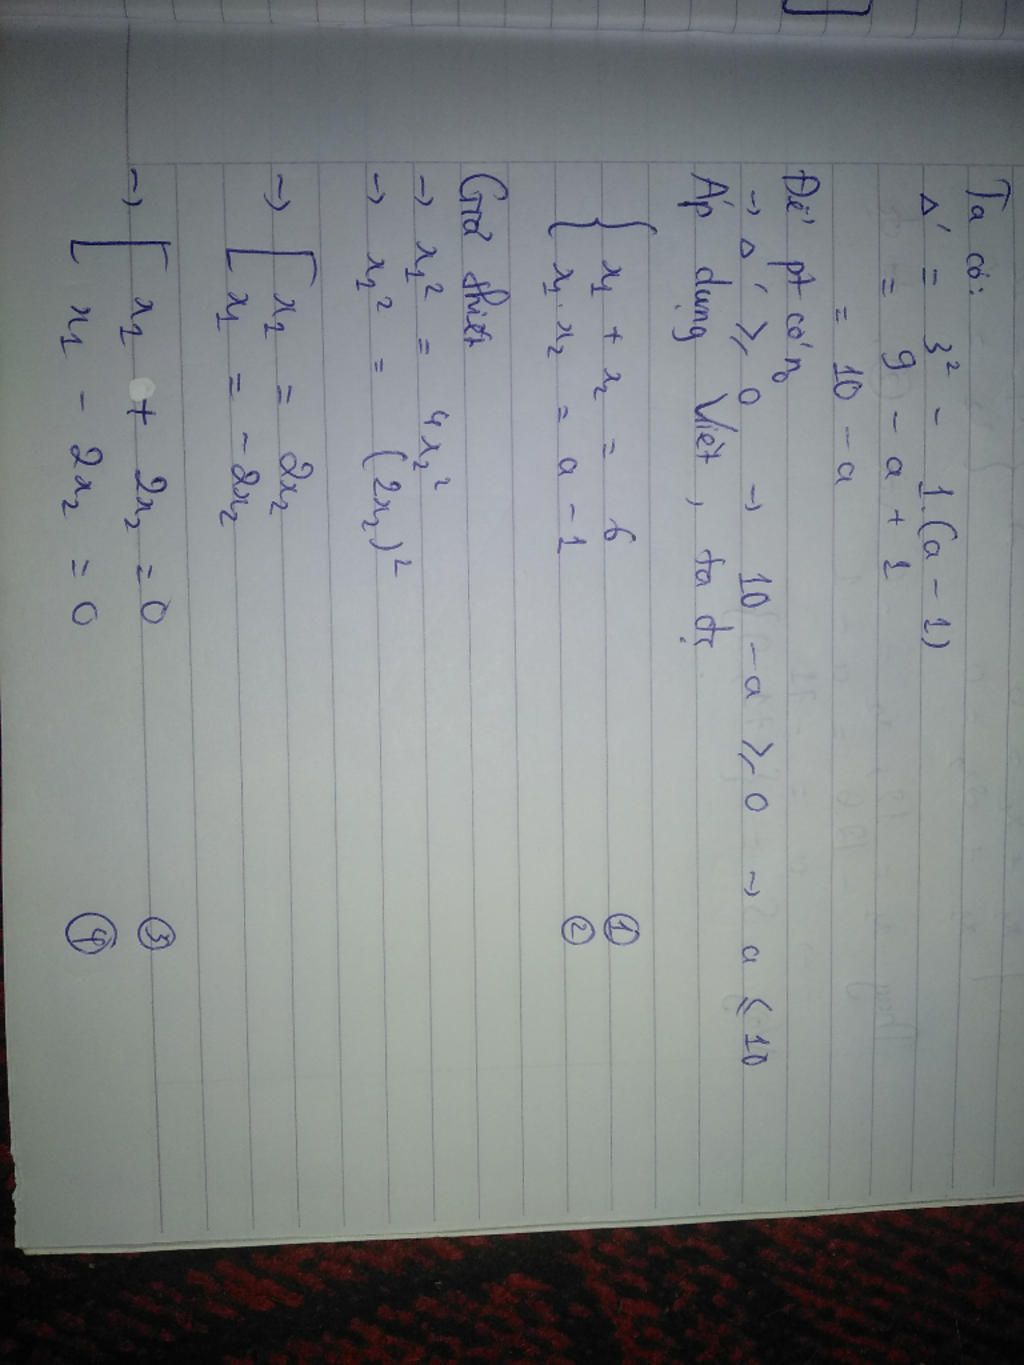 Ta có:
Δ' = 3² - 1.(a - 1)
= 9 - a + 1
= 10 - a
Để pt có n₀
→ Δ' ≥ 0 → 10 - a ≥ 0 → a ≤ 10
Áp dụng Viét, ta đc
{ x₁ + x₂ = 6 ①
{ x₁ . x₂ = a - 1 ②
Giả thiết
→ x₁² = 4x₂²
→ x₁² = (2x₂)²
→ [ x₁ = 2x₂
[ x₁ = -2x₂
→ [ x₁ + 2x₂ = 0 ③
[ x₁ - 2x₂ = 0 ④